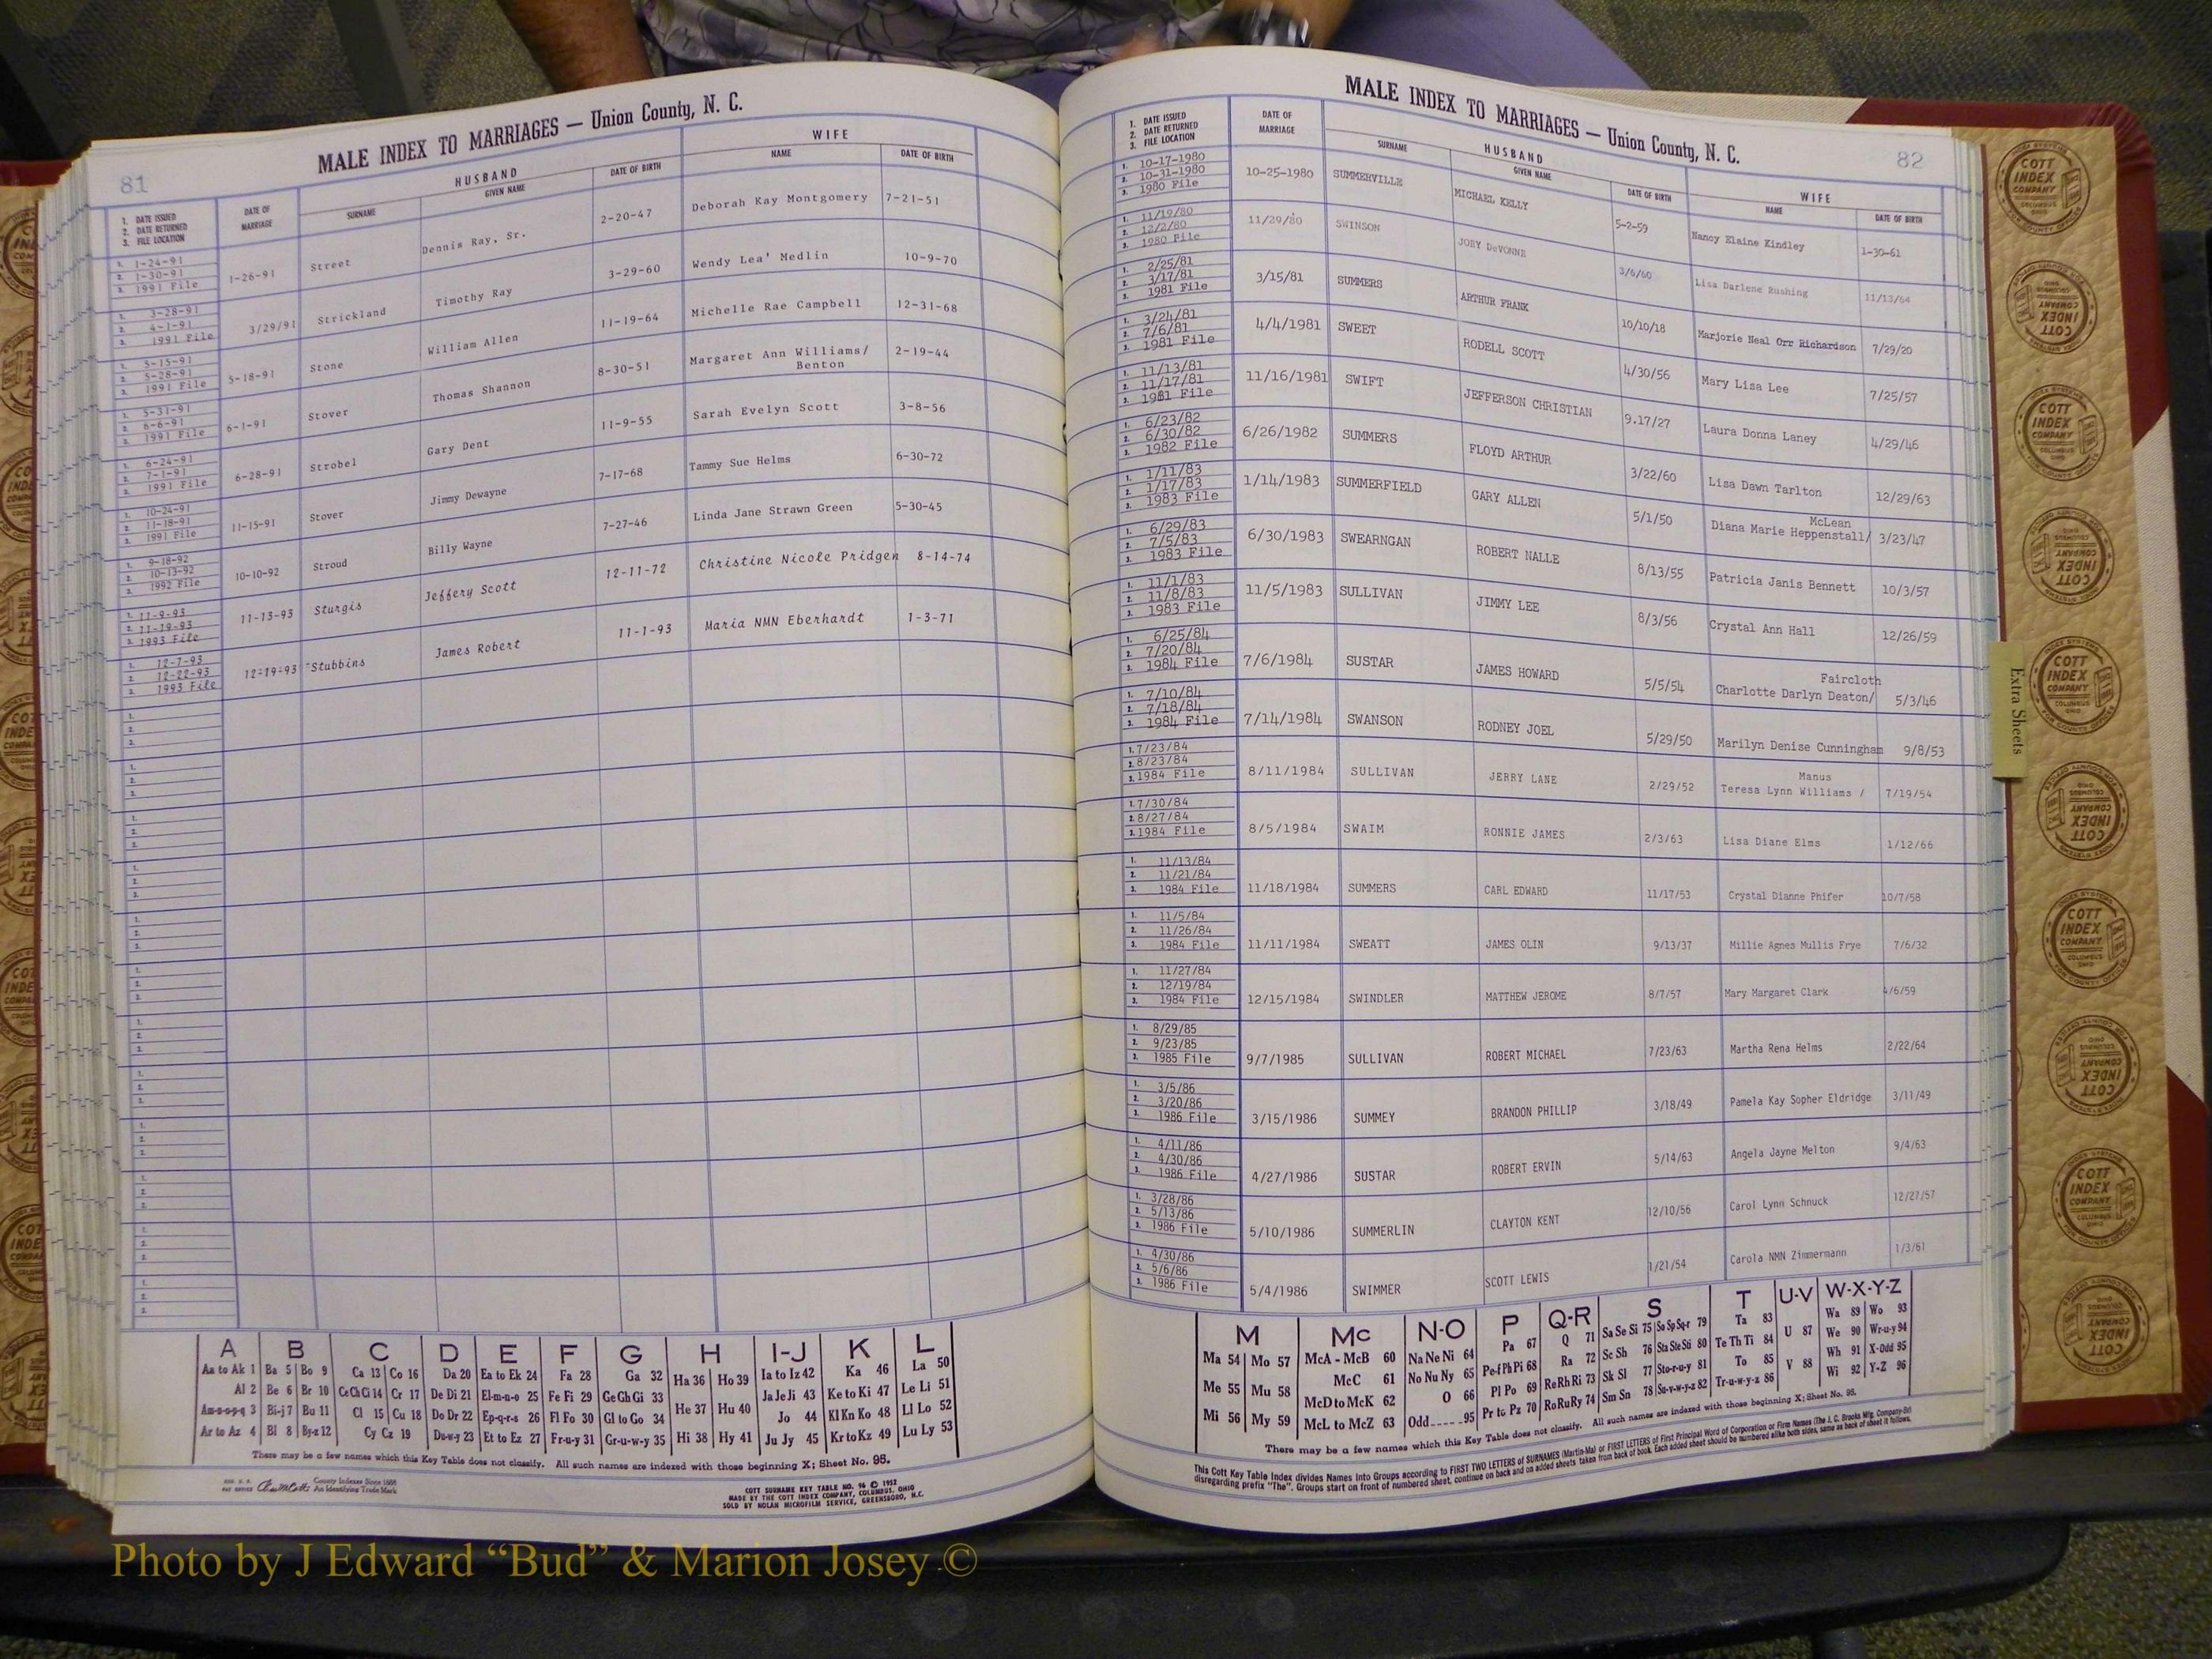 81
MALE INDEX TO MARRIAGES — Union County, N. C.
1. DATE ISSUED
2. DATE RETURNED
3. FILE LOCATION
DATE OF MARRIAGE
HUSBAND
SURNAME
GIVEN NAME
DATE OF BIRTH
WIFE
NAME
DATE OF BIRTH
1. 1-24-91
2. 1-30-91
3. 1991 File
1-26-91 Street Dennis Ray, Sr. 2-20-47 Deborah Kay Montgomery 7-21-51
1. 3-28-91
2. 4-1-91
3. 1991 File
3/29/91 Strickland Timothy Ray 3-29-60 Wendy Lea' Medlin 10-9-70
1. 5-15-91
2. 5-28-91
3. 1991 File
5-18-91 Stone William Allen 11-19-64 Michelle Rae Campbell 12-31-68
1. 5-31-91
2. 6-6-91
3. 1991 File
6-1-91 Stover Thomas Shannon 8-30-51 Margaret Ann Williams/ 2-19-44
Benton
1. 6-24-91
2. 7-1-91
3. 1991 File
6-28-91 Strobel Gary Dent 11-9-55 Sarah Evelyn Scott 3-8-56
1. 10-24-91
2. 11-18-91
3. 1991 File
11-15-91 Stover Jimmy Dewayne 7-17-68 Tammy Sue Helms 6-30-72
1. 9-18-92
2. 10-13-92
3. 1992 File
10-10-92 Stroud Billy Wayne 7-27-46 Linda Jane Strawn Green 5-30-45
1. 11-9-93
2. 11-19-93
3. 1993 File
11-13-93 Sturgis Jeffery Scott 12-11-72 Christine Nicole Pridgen 8-14-74
1. 12-7-93
2. 12-22-93
3. 1993 File
12-19-93 Stubbins James Robert 11-1-93 Maria NMN Eberhardt 1-3-71
A
Aa to Ak 1
Al 2
Am-n-o-p-q 3
Ar to Az 4
B
Ba 5 Bo 9
Be 6 Br 10
Bi-j 7 Bu 11
Bl 8 By-z 12
C
Ca 13 Co 16
Ce Ch Ci 14 Cr 17
Cl 15 Cu 18
Cy Cz 19
D
Da 20
De Di 21
Do Dr 22
Du-w-y 23
E
Ea to Ek 24
El-m-n-o 25
Ep-q-r-s 26
Et to Ez 27
F
Fa 28
Fe Fi 29
Fl Fo 30
Fr-u-y 31
G
Ga 32
Ge Gh Gi 33
Gl to Go 34
Gr-u-w-y 35
H
Ha 36 Ho 39
He 37 Hu 40
Hi 38 Hy 41
I-J
Ia to Iz 42
Ja Je Ji 43
Jo 44
Ju Jy 45
K
Ka 46
Ke to Ki 47
Kl Kn Ko 48
Kr to Kz 49
L
La 50
Le Li 51
Ll Lo 52
Lu Ly 53
There may be a few names which this Key Table does not classify. All such names are indexed with those beginning X; Sheet No. 95.
County Indexes Since 1888
An Identifying Trade Mark
COTT SURNAME KEY TABLE NO. 96 © 1952
MADE BY THE COTT INDEX COMPANY, COLUMBUS, OHIO
SOLD BY NOLAN MICROFILM SERVICE, GREENSBORO, N.C.
MALE INDEX TO MARRIAGES — Union County, N. C.
82
1. DATE ISSUED
2. DATE RETURNED
3. FILE LOCATION
DATE OF MARRIAGE
HUSBAND
SURNAME
GIVEN NAME
DATE OF BIRTH
WIFE
NAME
DATE OF BIRTH
1. 10-17-1980
2. 10-31-1980
3. 1980 File
10-25-1980 SUMMERVILLE MICHAEL KELLY 5-2-59 Nancy Elaine Kindley 1-30-61
1. 11/19/80
2. 12/2/80
3. 1980 File
11/29/80 SWINSON JOEY DeVONNE 3/6/60 Lisa Darlene Rushing 11/13/64
1. 2/25/81
2. 3/17/81
3. 1981 File
3/15/81 SUMMERS ARTHUR FRANK 10/10/18 Marjorie Neal Orr Richardson 7/29/20
1. 3/24/81
2. 7/6/81
3. 1981 File
4/4/1981 SWEET RODELL SCOTT 4/30/56 Mary Lisa Lee 7/25/57
1. 11/13/81
2. 11/17/81
3. 1981 File
11/16/1981 SWIFT JEFFERSON CHRISTIAN 9.17/27 Laura Donna Laney 4/29/46
1. 6/23/82
2. 6/30/82
3. 1982 File
6/26/1982 SUMMERS FLOYD ARTHUR 3/22/60 Lisa Dawn Tarlton 12/29/63
1. 1/11/83
2. 1/17/83
3. 1983 File
1/14/1983 SUMMERFIELD GARY ALLEN 5/1/50 Diana Marie Heppenstall/ McLean 3/23/47
1. 6/29/83
2. 7/5/83
3. 1983 File
6/30/1983 SWEARNGAN ROBERT NALLE 8/13/55 Patricia Janis Bennett 10/3/57
1. 11/1/83
2. 11/8/83
3. 1983 File
11/5/1983 SULLIVAN JIMMY LEE 8/3/56 Crystal Ann Hall 12/26/59
1. 6/25/84
2. 7/20/84
3. 1984 File
7/6/1984 SUSTAR JAMES HOWARD 5/5/54 Charlotte Darlyn Deaton/ Faircloth 5/3/46
1. 7/10/84
2. 7/18/84
3. 1984 File
7/14/1984 SWANSON RODNEY JOEL 5/29/50 Marilyn Denise Cunningham 9/8/53
1. 7/23/84
2. 8/23/84
3. 1984 File
8/11/1984 SULLIVAN JERRY LANE 2/29/52 Teresa Lynn Williams / Manus 7/19/54
1. 7/30/84
2. 8/27/84
3. 1984 File
8/5/1984 SWAIM RONNIE JAMES 2/3/63 Lisa Diane Elms 1/12/66
1. 11/13/84
2. 11/21/84
3. 1984 File
11/18/1984 SUMMERS CARL EDWARD 11/17/53 Crystal Dianne Phifer 10/7/58
1. 11/5/84
2. 11/26/84
3. 1984 File
11/11/1984 SWEATT JAMES OLIN 9/13/37 Millie Agnes Mullis Frye 7/6/32
1. 11/27/84
2. 12/19/84
3. 1984 File
12/15/1984 SWINDLER MATTHEW JEROME 8/7/57 Mary Margaret Clark 4/6/59
1. 8/29/85
2. 9/23/85
3. 1985 File
9/7/1985 SULLIVAN ROBERT MICHAEL 7/23/63 Martha Rena Helms 2/22/64
1. 3/5/86
2. 3/20/86
3. 1986 File
3/15/1986 SUMMEY BRANDON PHILLIP 3/18/49 Pamela Kay Sopher Eldridge 3/11/49
1. 4/11/86
2. 4/30/86
3. 1986 File
4/27/1986 SUSTAR ROBERT ERVIN 5/14/63 Angela Jayne Melton 9/4/63
1. 3/28/86
2. 5/13/86
3. 1986 File
5/10/1986 SUMMERLIN CLAYTON KENT 12/10/56 Carol Lynn Schnuck 12/27/57
1. 4/30/86
2. 5/6/86
3. 1986 File
5/4/1986 SWIMMER SCOTT LEWIS 1/21/54 Carola NMN Zimmermann 1/3/61
M
Ma 54 Mo 57
Me 55 Mu 58
Mi 56 My 59
Mc
McA - McB 60
McC 61
McD to McK 62
McL to McZ 63
N-O
Na Ne Ni 64
No Nu Ny 65
O 66
Odd 95
P
Pa 67
Pe-f Ph Pi 68
Pl Po 69
Pr to Pz 70
Q-R
Q 71
Ra 72
Re Rh Ri 73
Ro Ru Ry 74
S
Sa Se Si 75 So Sp Sq-r 79
Sc Sh 76 Sta Ste Sti 80
Sk Sl 77 Sto-r-u-y 81
Sm Sn 78 Su-v-w-y-z 82
T
Ta 83
Te Th Ti 84
To 85
Tr-u-w-y-z 86
U-V
U 87
V 88
W-X-Y-Z
Wa 89 Wo 93
We 90 Wr-u-y 94
Wh 91 X-Odd 95
Wi 92 Y-Z 96
There may be a few names which this Key Table does not classify. All such names are indexed with those beginning X; Sheet No. 95.
This Cott Key Table Index divides Names Into Groups according to FIRST TWO LETTERS of SURNAMES (Martin-Ma) or FIRST LETTERS of First Principal Word of Corporation or Firm Names (The J. C. Brooks Mfg. Company-Br)
disregarding prefix "The". Groups start on front of numbered sheet, continue on back and on added sheets taken from back of book. Each added sheet should be numbered alike both sides, same as back of sheet it follows.
Extra Sheets
COTT
INDEX
COMPANY
COLUMBUS
OHIO
Photo by J Edward “Bud” & Marion Josey ©